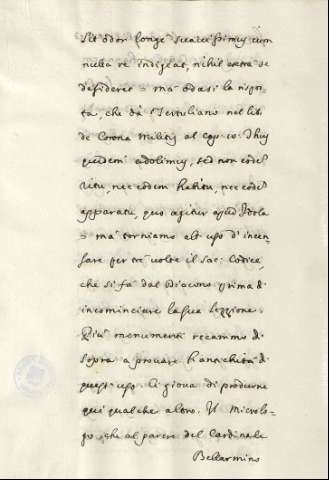 sit odor longè suavissimus, cum
nulla re indigeat, nihil extra se
desideret = ma odasi la rispos-
ta, che dà Tertuliano nel lib:
de Corona Militis al cap: 10. Thus
quidem adolemus, sed non eodē
ritu, nec eodem habitu, nec eodē
apparatu, quo agitur apud Idola
= ma torniamo all'uso d'incen-
sare per trè volte il sac: Codice,
che si fà dal Diacono prima d'
incominciare la sua Lezzione.
Più monumenti recammo di
sopra a provare l'antichità di
quest'uso. Ci giova di produrne
qui qualche altro. Il Microlo-
go, che al parere del Cardinale
Bellarmino